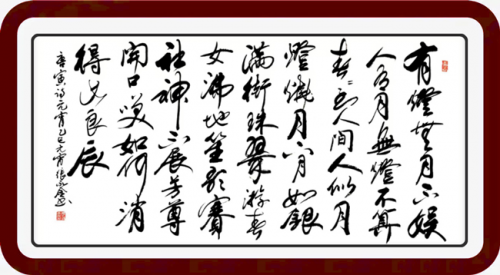 有燈無月不娱
人有月無燈不算
春〻到人间人似玉
燈燒月下月如銀
滿街珠翠游春
女沸地笙歌賽
社神不展芳尊
開口笑如何消
得此良辰
唐寅詩元宵乙巳元宵